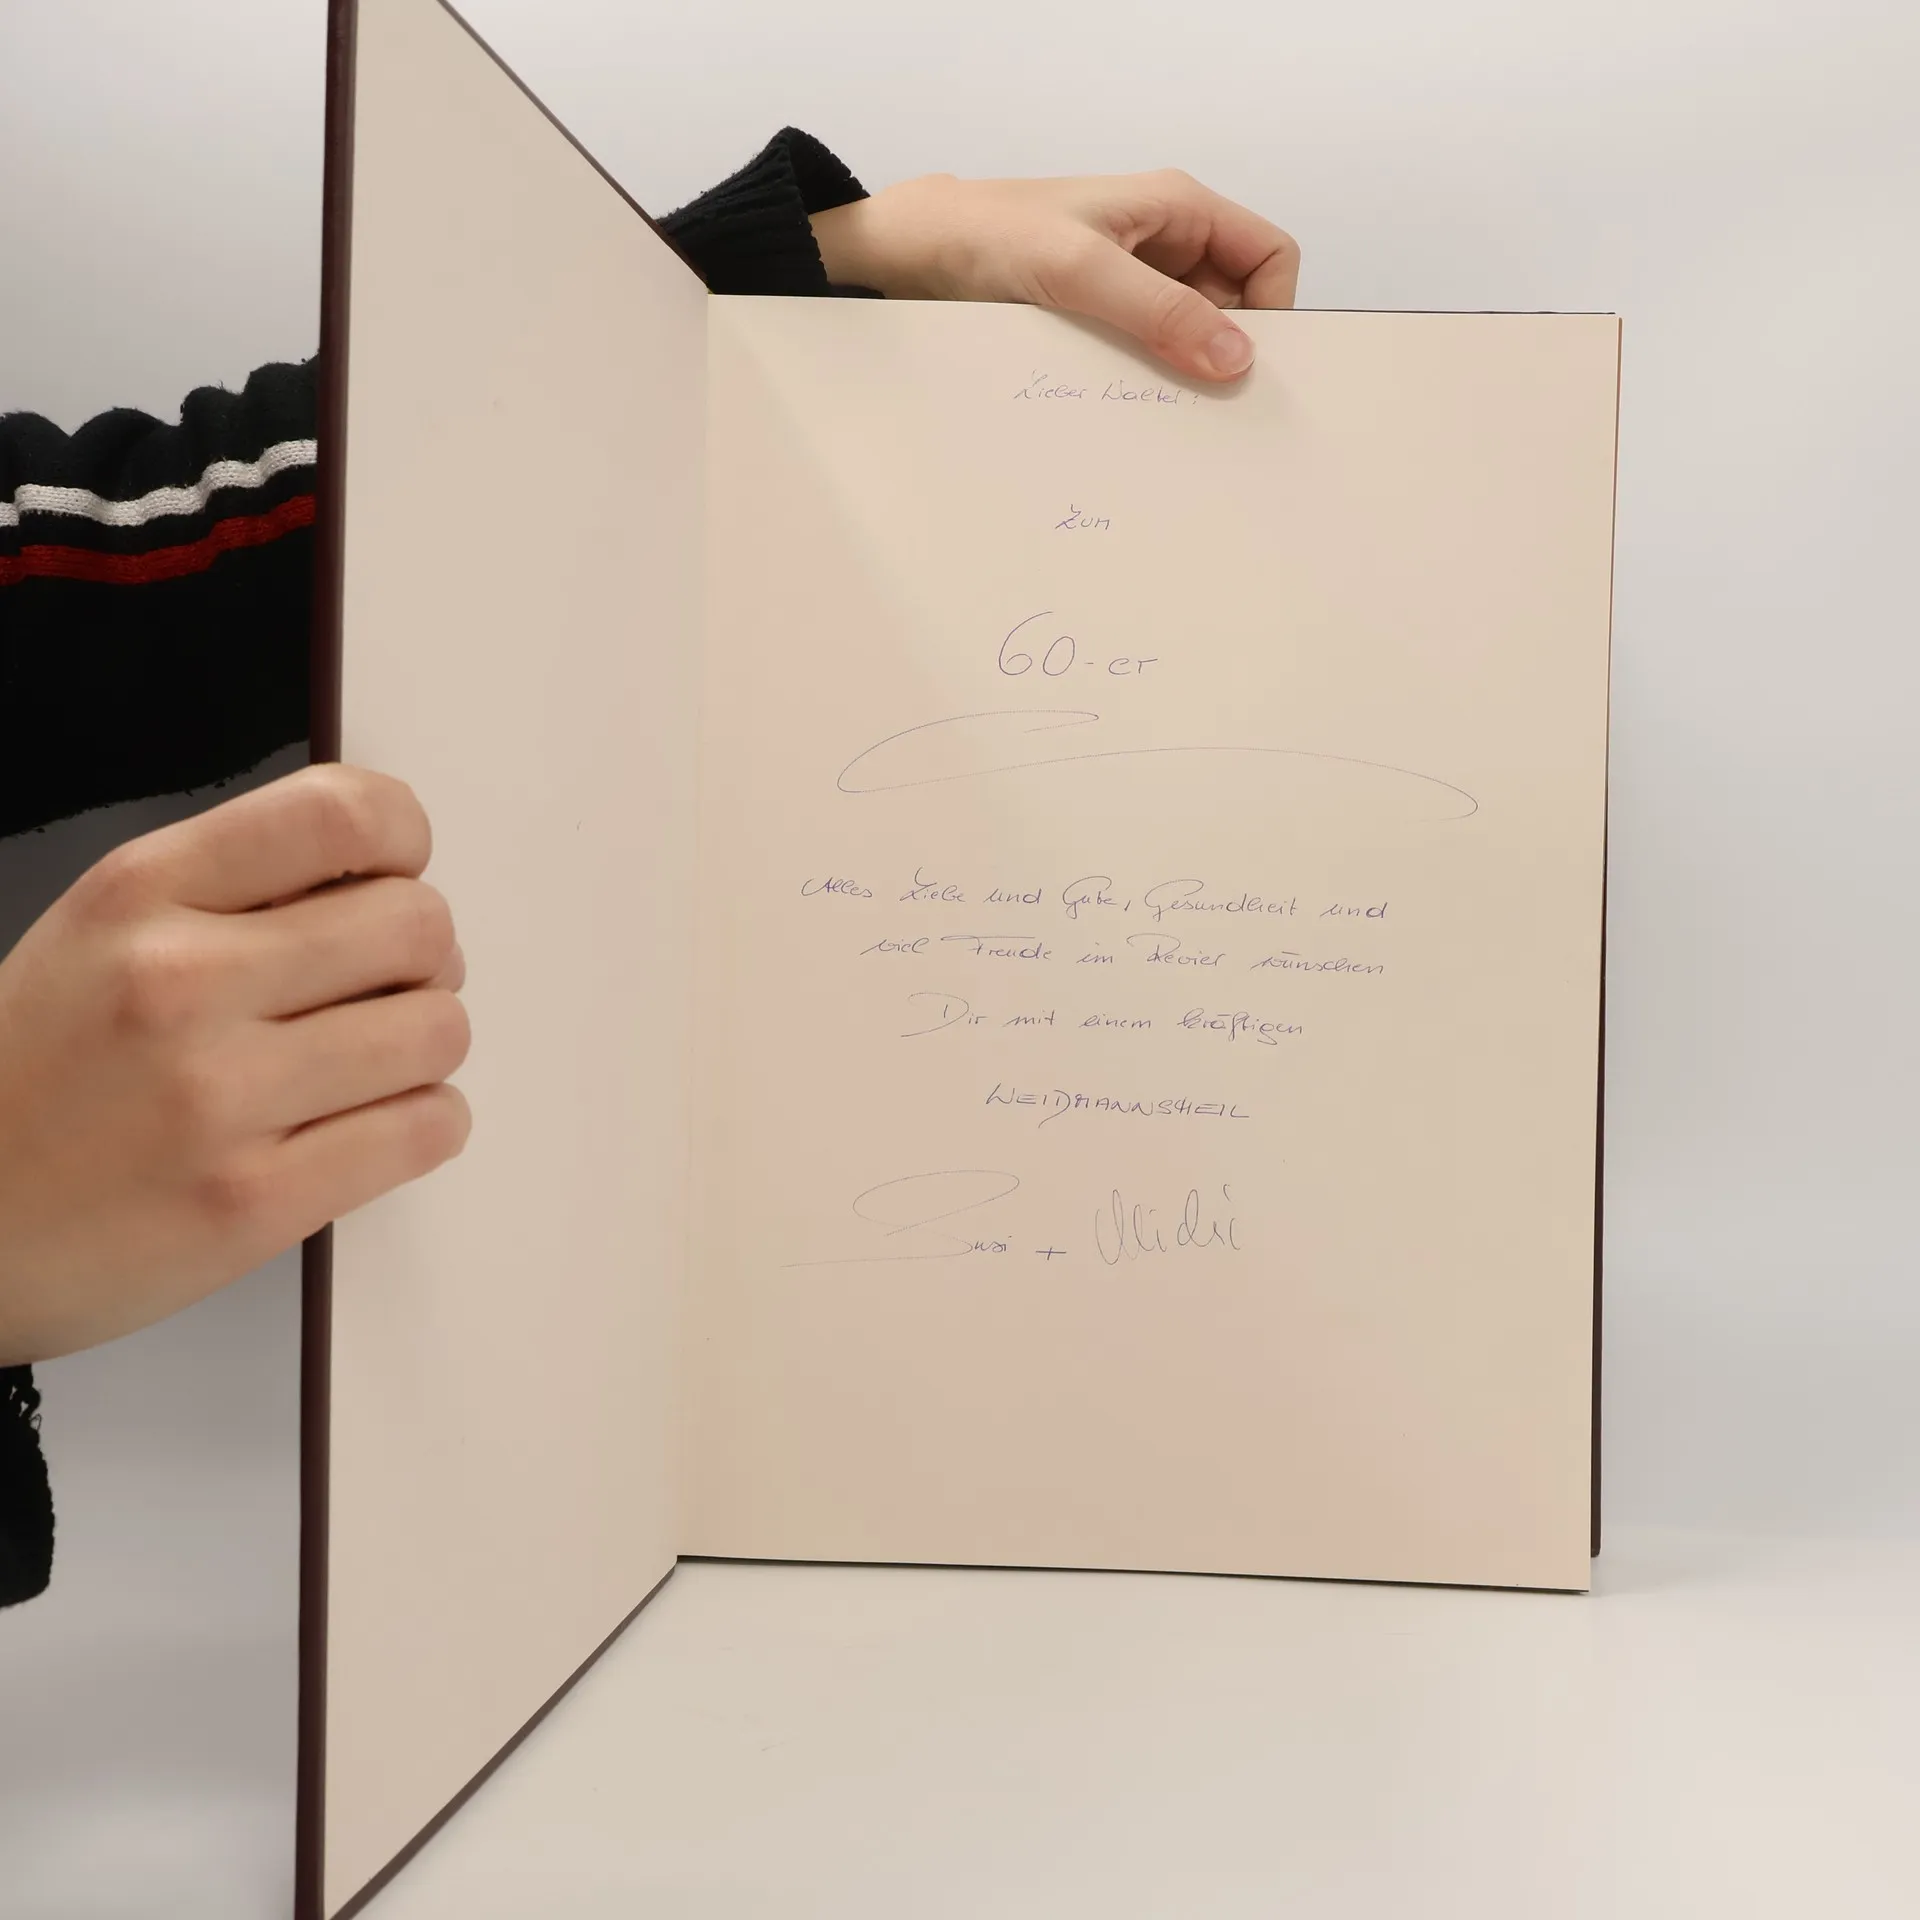 Lieber Walter:
Zum
60-er
Alles Liebe und Gute, Gesundheit und
viel Freude im Revier wünschen
Dir mit einem kräftigen
WEIDMANNSHEIL
Susi +